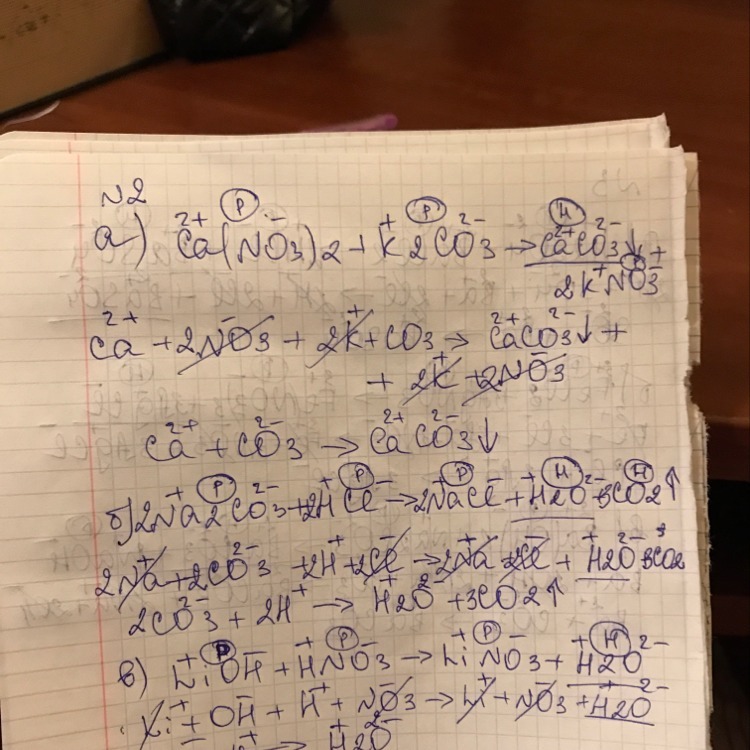 N2
а) Ca²⁺(NO3)⁻2 + K⁺2CO3²⁻ → Ca²⁺CO3²⁻↓ +
2K⁺NO3⁻
Ca²⁺ + 2NO3⁻ + 2K⁺ + CO3 → Ca²⁺CO3²⁻↓ +
+ 2K⁺ + 2NO3⁻
Ca²⁺ + CO3²⁻ → Ca²⁺CO3²⁻↓
б) 2Na⁺2CO3²⁻ + 2H⁺Cl⁻ → 2Na⁺Cl⁻ + H⁺2O²⁻ + 3CO2↑
2Na⁺ + 2CO3²⁻ + 2H⁺ + 2Cl⁻ → 2Na⁺ + 2Cl⁻ + H⁺2O²⁻ + 3CO2
2CO3²⁻ + 2H⁺ → H⁺2O²⁻ + 3CO2↑
в) Li⁺OH⁻ + H⁺NO3⁻ → Li⁺NO3⁻ + H⁺2O²⁻
Li⁺ + OH⁻ + H⁺ + NO3⁻ → Li⁺ + NO3⁻ + H⁺2O²⁻
→ H⁺2O²⁻